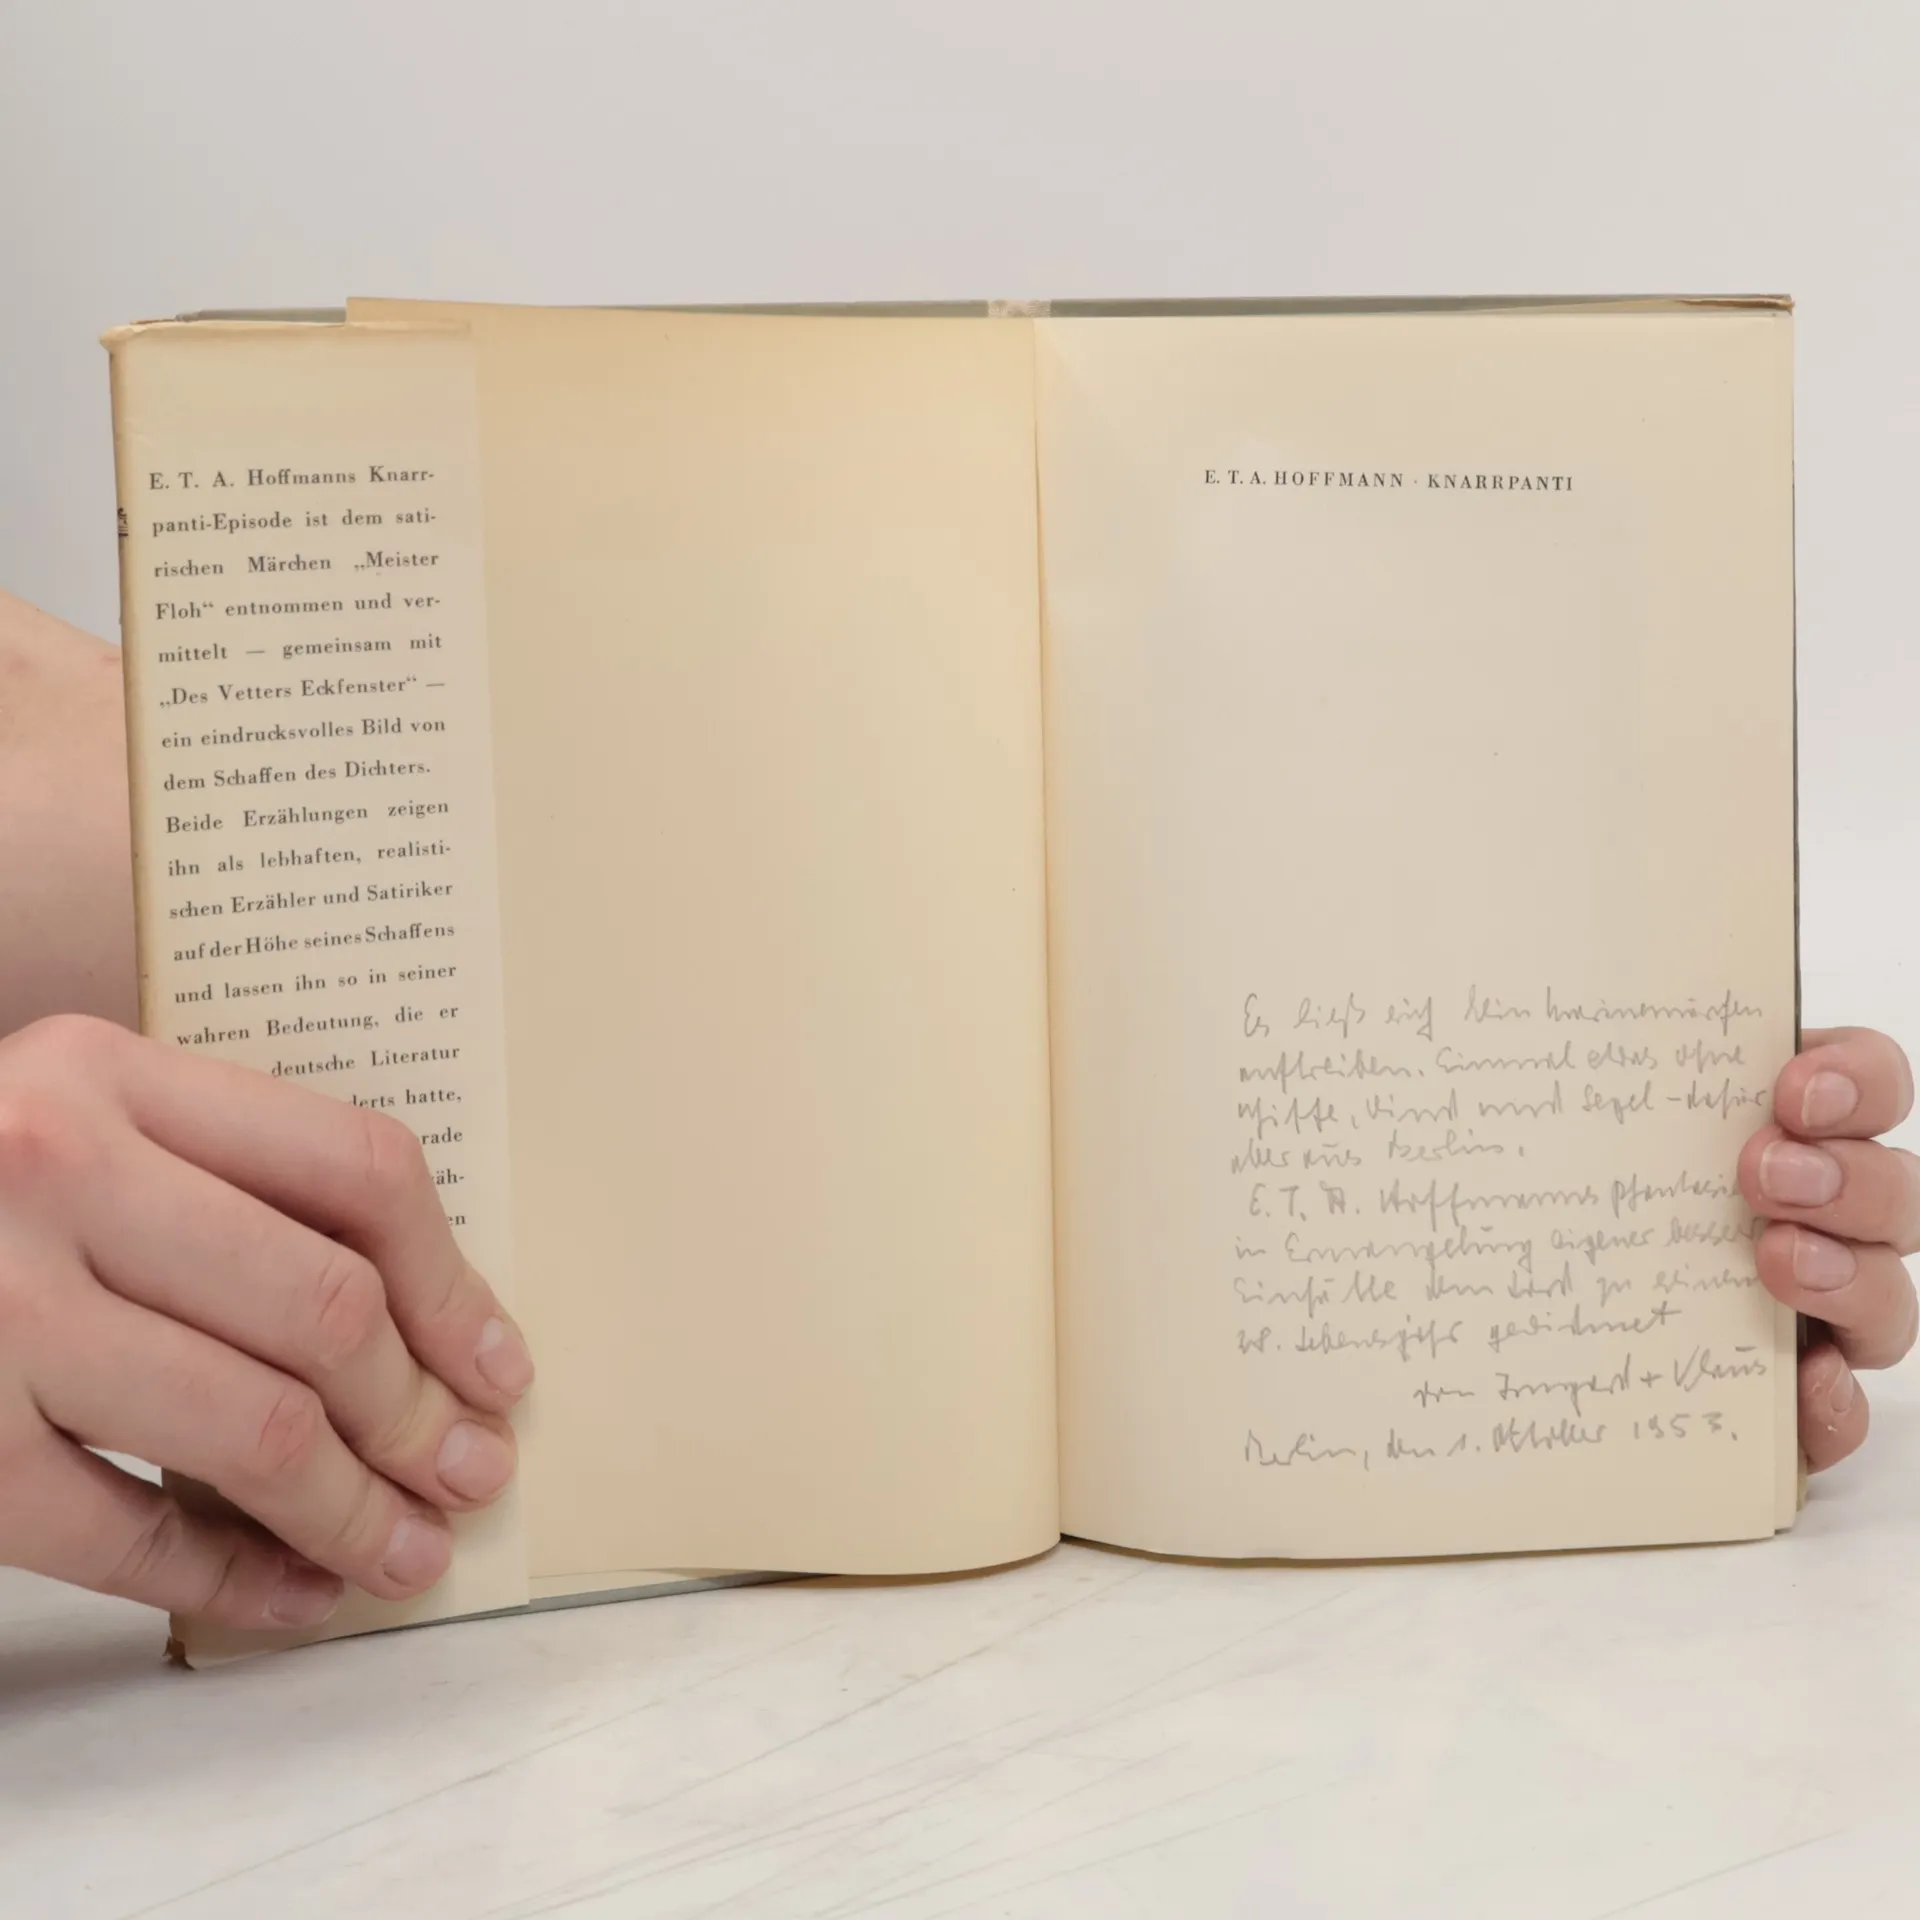 E. T. A. Hoffmanns Knarr-
panti-Episode ist dem sati-
rischen Märchen „Meister
Floh“ entnommen und ver-
mittelt — gemeinsam mit
„Des Vetters Eckfenster“ —
ein eindrucksvolles Bild von
dem Schaffen des Dichters.
Beide Erzählungen zeigen
ihn als lebhaften, realisti-
schen Erzähler und Satiriker
auf der Höhe seines Schaffens
und lassen ihn so in seiner
wahren Bedeutung, die er
deutsche Literatur
derts hatte,
rade
äh-
en
E. T. A. HOFFMANN · KNARRPANTI
Es ließ sich kein Marinemärchen
auftreiben. Einmal etwas ohne
Schiffe, Wind und Segel – dafür
aber aus Berlin.
E. T. A. Hoffmanns Phantasie
in Ermangelung eigener besserer
Einfälle dem zu seinem
28. Lebensjahr gewidmet
von Irmgard + Klaus
Berlin, den 1. Oktober 1953.